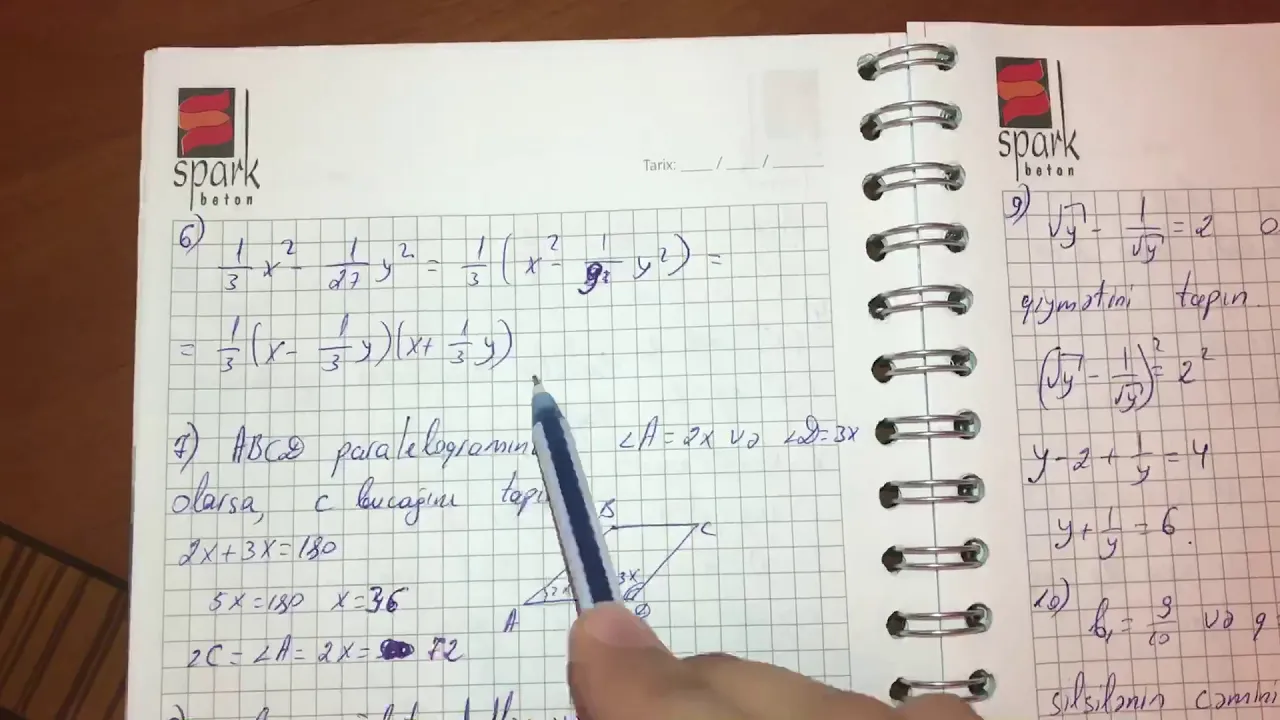 spark
beton
Tarix: ___ / ___ / _____
6) 1/3 x² - 1/27 y² = 1/3 (x² - 1/9 y²) =
= 1/3 (x - 1/3 y)(x + 1/3 y)
7) ABCD paralelogramın ∠A = 2x və ∠D = 3x
olarsa, C bucağını
2x + 3x = 180
5x = 180 x = 36
∠C = ∠A = 2x = 72
B
C
3x
A
spark
beton
9) √y - 1/√y = 2
qiymətini tapın.
(√y - 1/√y)² = 2²
y - 2 + 1/y = 4
y + 1/y = 6.
10) b₁ = 9/10 və q
silsilənin cəmini